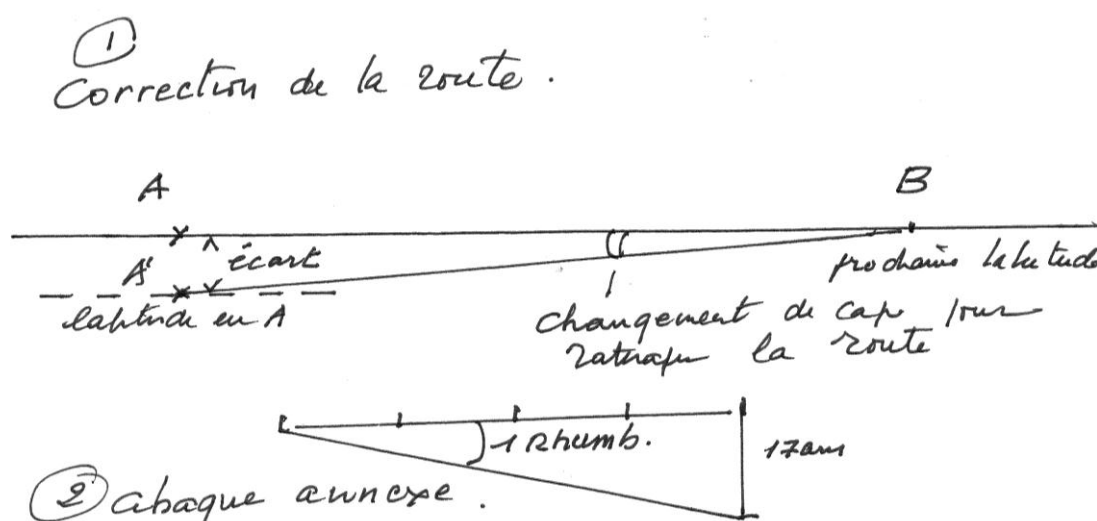 1
Correction de la route.
A B
A' écart prochaine latitude
latitude en A changement de cap pour
rattraper la route
1 Rhumb.
2 abaque annexe.